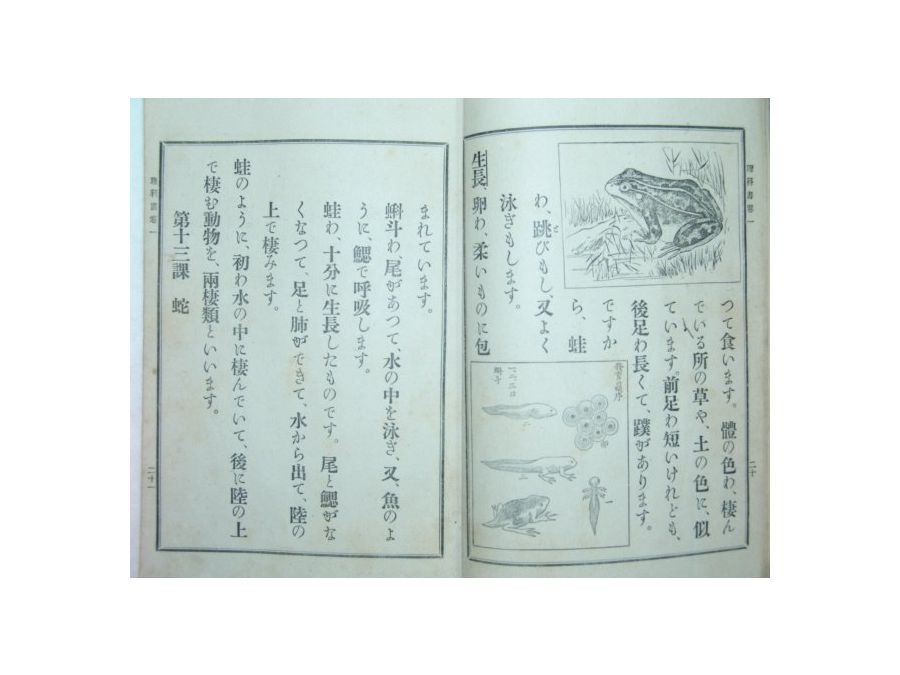 理科書卷一
つて食います。體の色わ、棲ん
でいる所の草や、土の色に、似
ています。前足わ短いけれども、
後足わ長くて、蹼があります。
ですか
ら、蛙
わ、跳びもし又よく
泳ぎもします。
生長、卵わ、柔いものに包
發育順序
卵
一
二
三
蝌斗
二十
まれています。
蝌斗わ、尾があつて、水の中を泳ぎ、又、魚のよ
うに、鰓で呼吸します。
蛙わ、十分に生長したものです。尾と鰓がな
くなつて、足と肺ができて、水から出て、陸の
上で棲みます。
蛙のように、初わ水の中に棲んでいて、後に陸の上
で棲む動物を、兩棲類といいます。
第十三課 蛇
理科書卷一
二十一